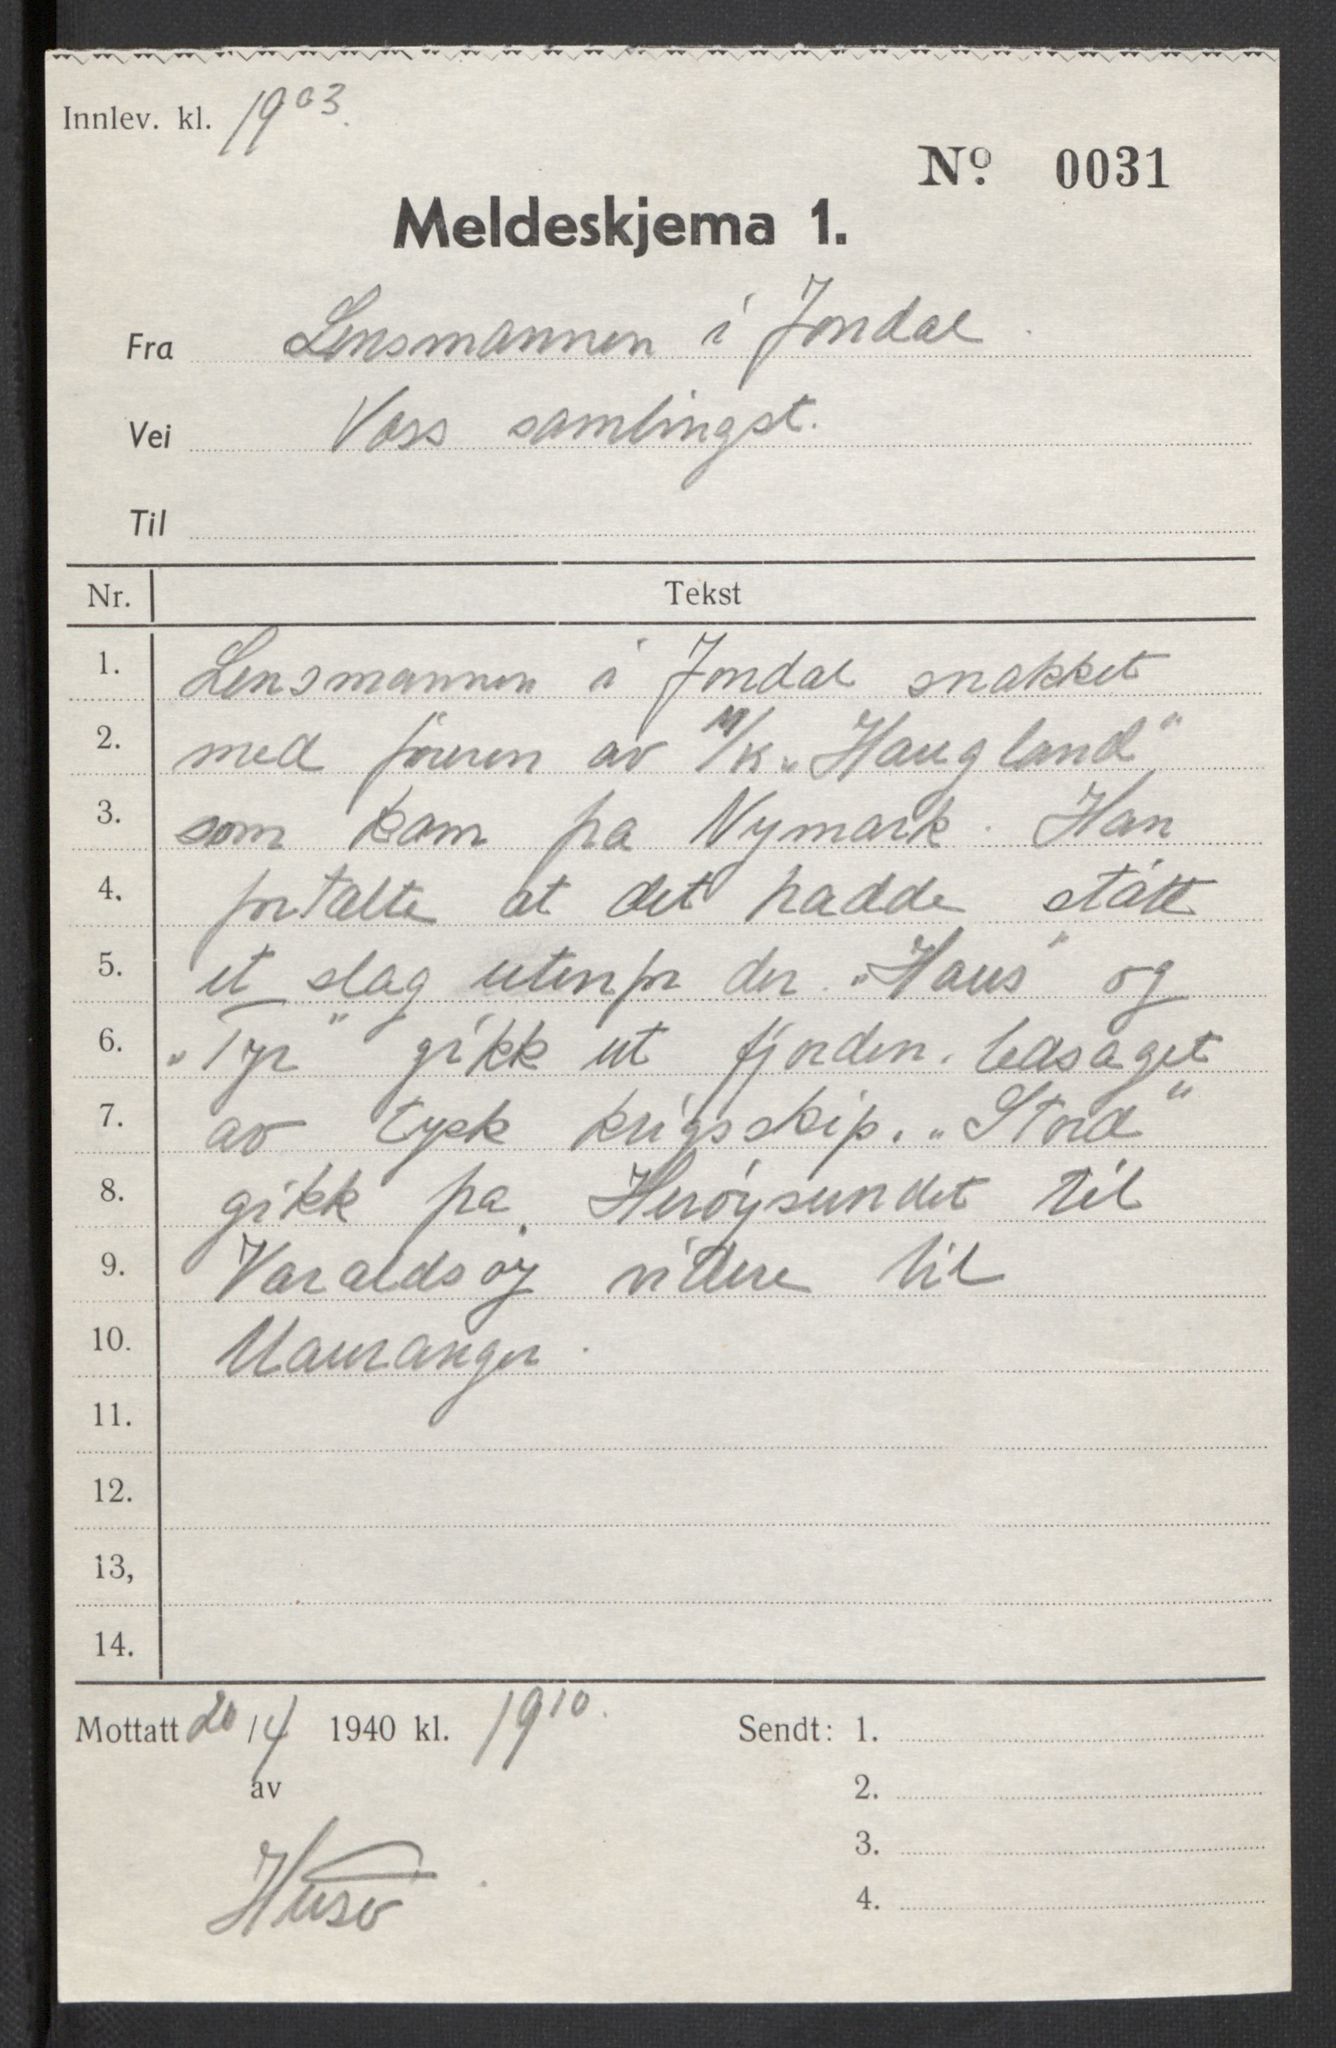 Innlev. kl. 19⁰³.
Nº 0031
Meldeskjema 1.
Fra Lensmannen i Jondal
Vei Voss samlingst.
Til
Nr. Tekst
1. Lensmannen i Jondal snakket
2. med föreren av M/K „Haugland"
3. som kom fra Nymark. Han
4. fortalte at det hadde stått
5. et slag utenfor der. „Haus" og
6. „Tyr" gikk ut fjorden. ledsaget
7. av tysk krigsskip. „Stord"
8. gikk fra Herøysundet til
9. Varaldsøy videre til
10. Mauranger.
11.
12.
13,
14.
Mottatt 20/4 1940 kl. 19¹⁰.
av
Sendt: 1.
2.
3.
4.